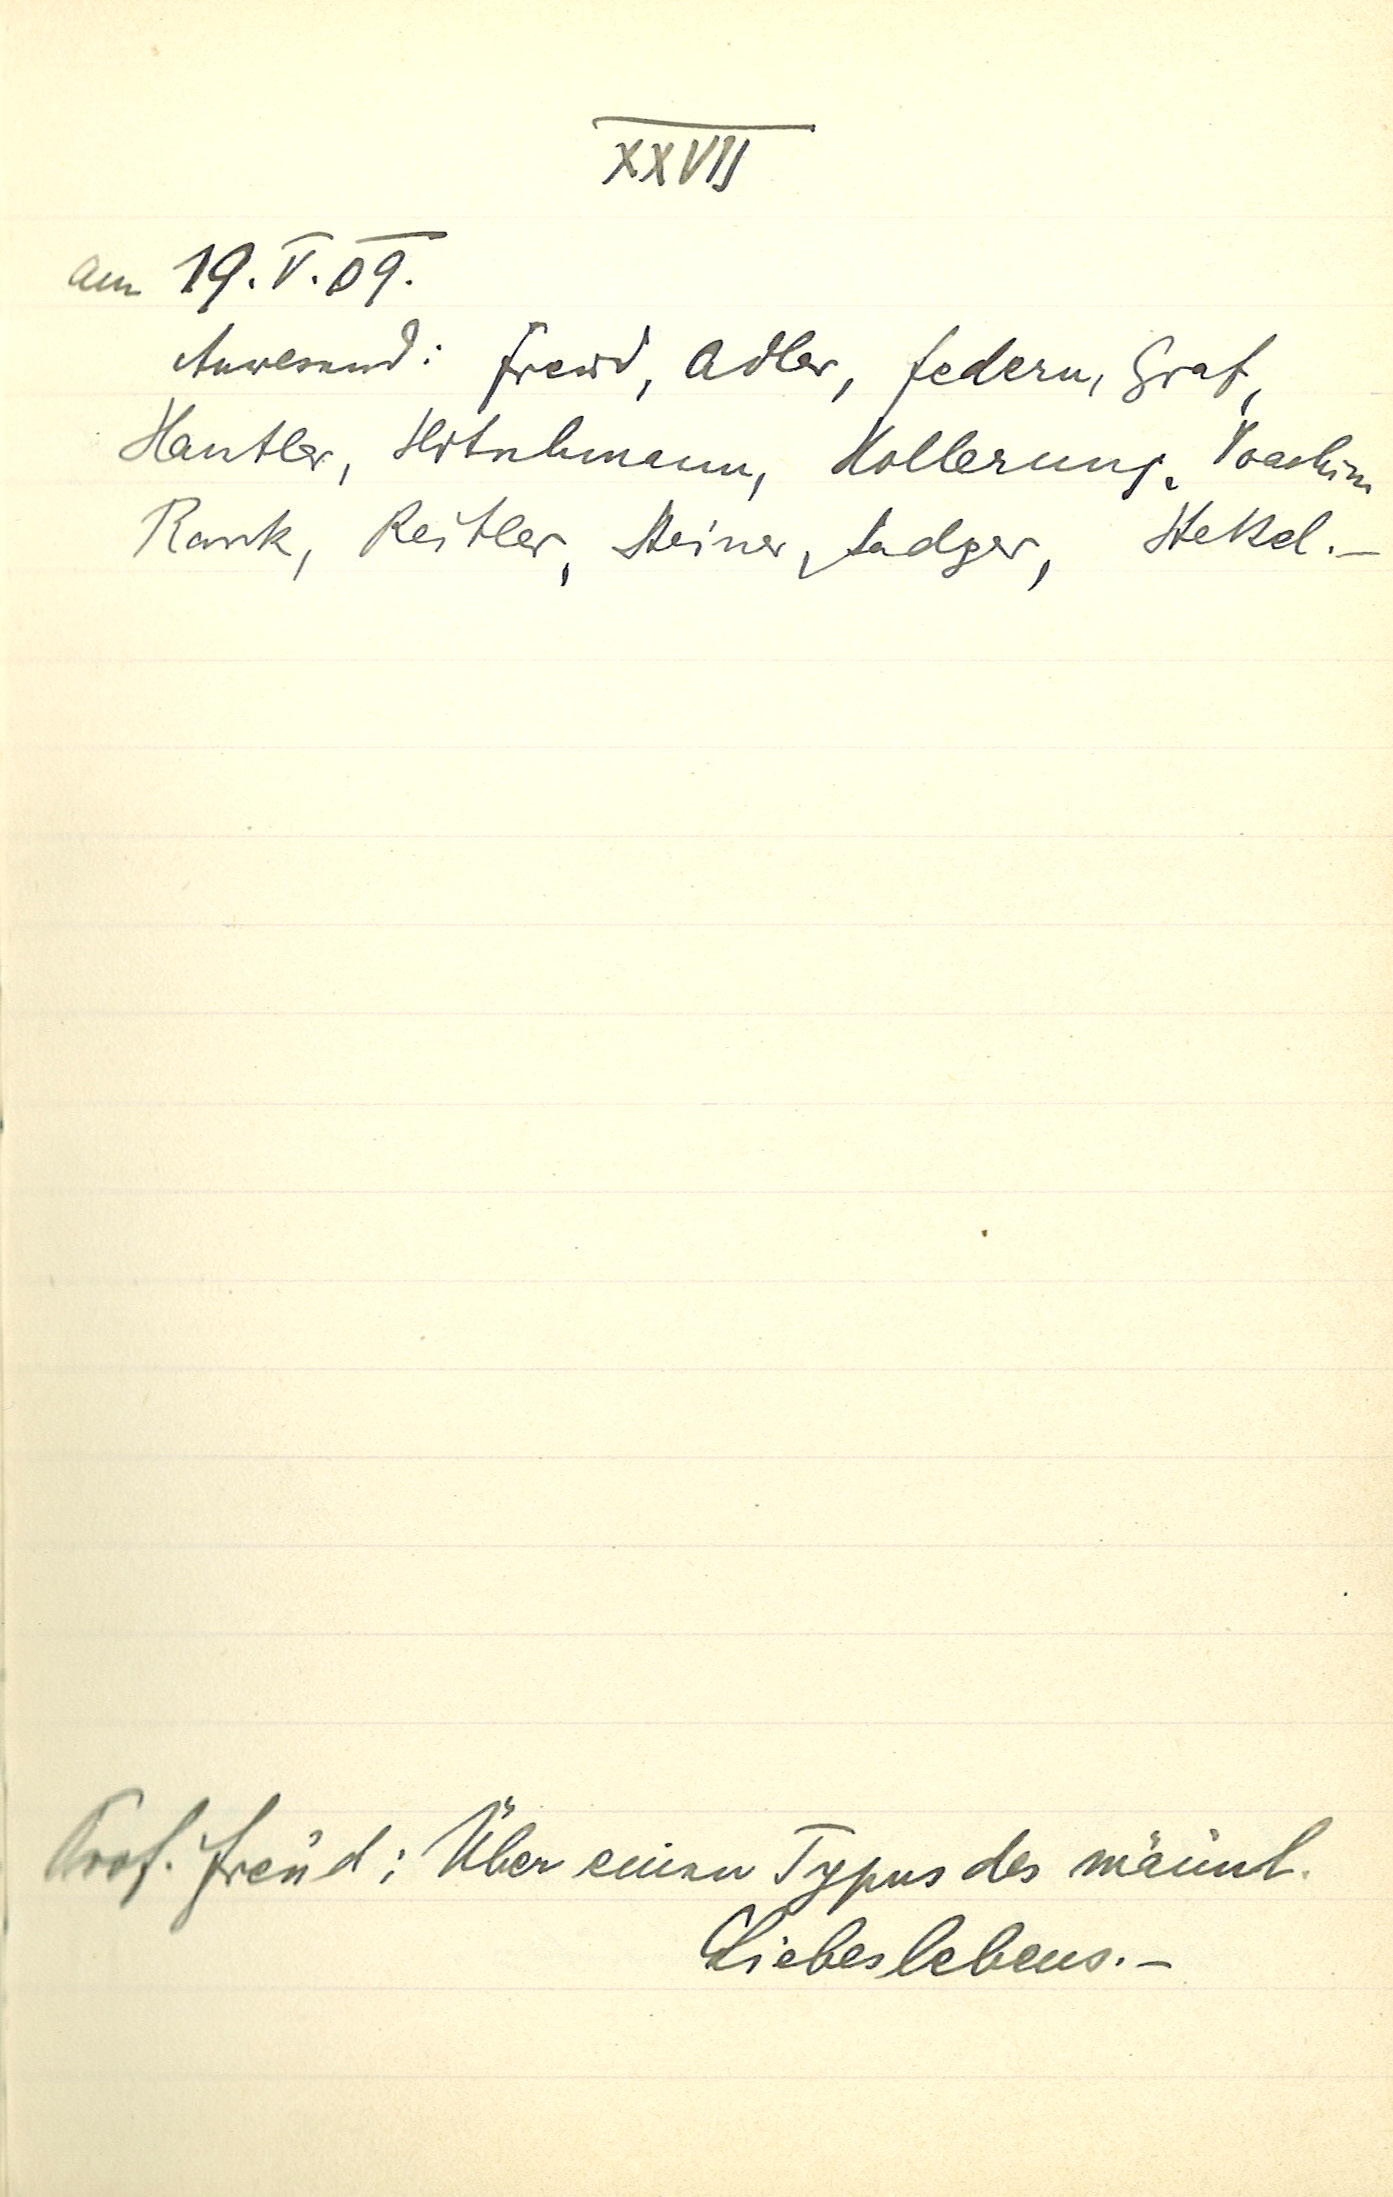 XXVII
am 19. V. 09.
Anwesend: Freud, Adler, Federn, Graf,
Hautler, Hitschmann, Hollerung, Joachim
Rank, Reitler, Steiner, Sadger, Stekel.—
Prof. Freud: Über einen Typus des männl.
Liebeslebens.—